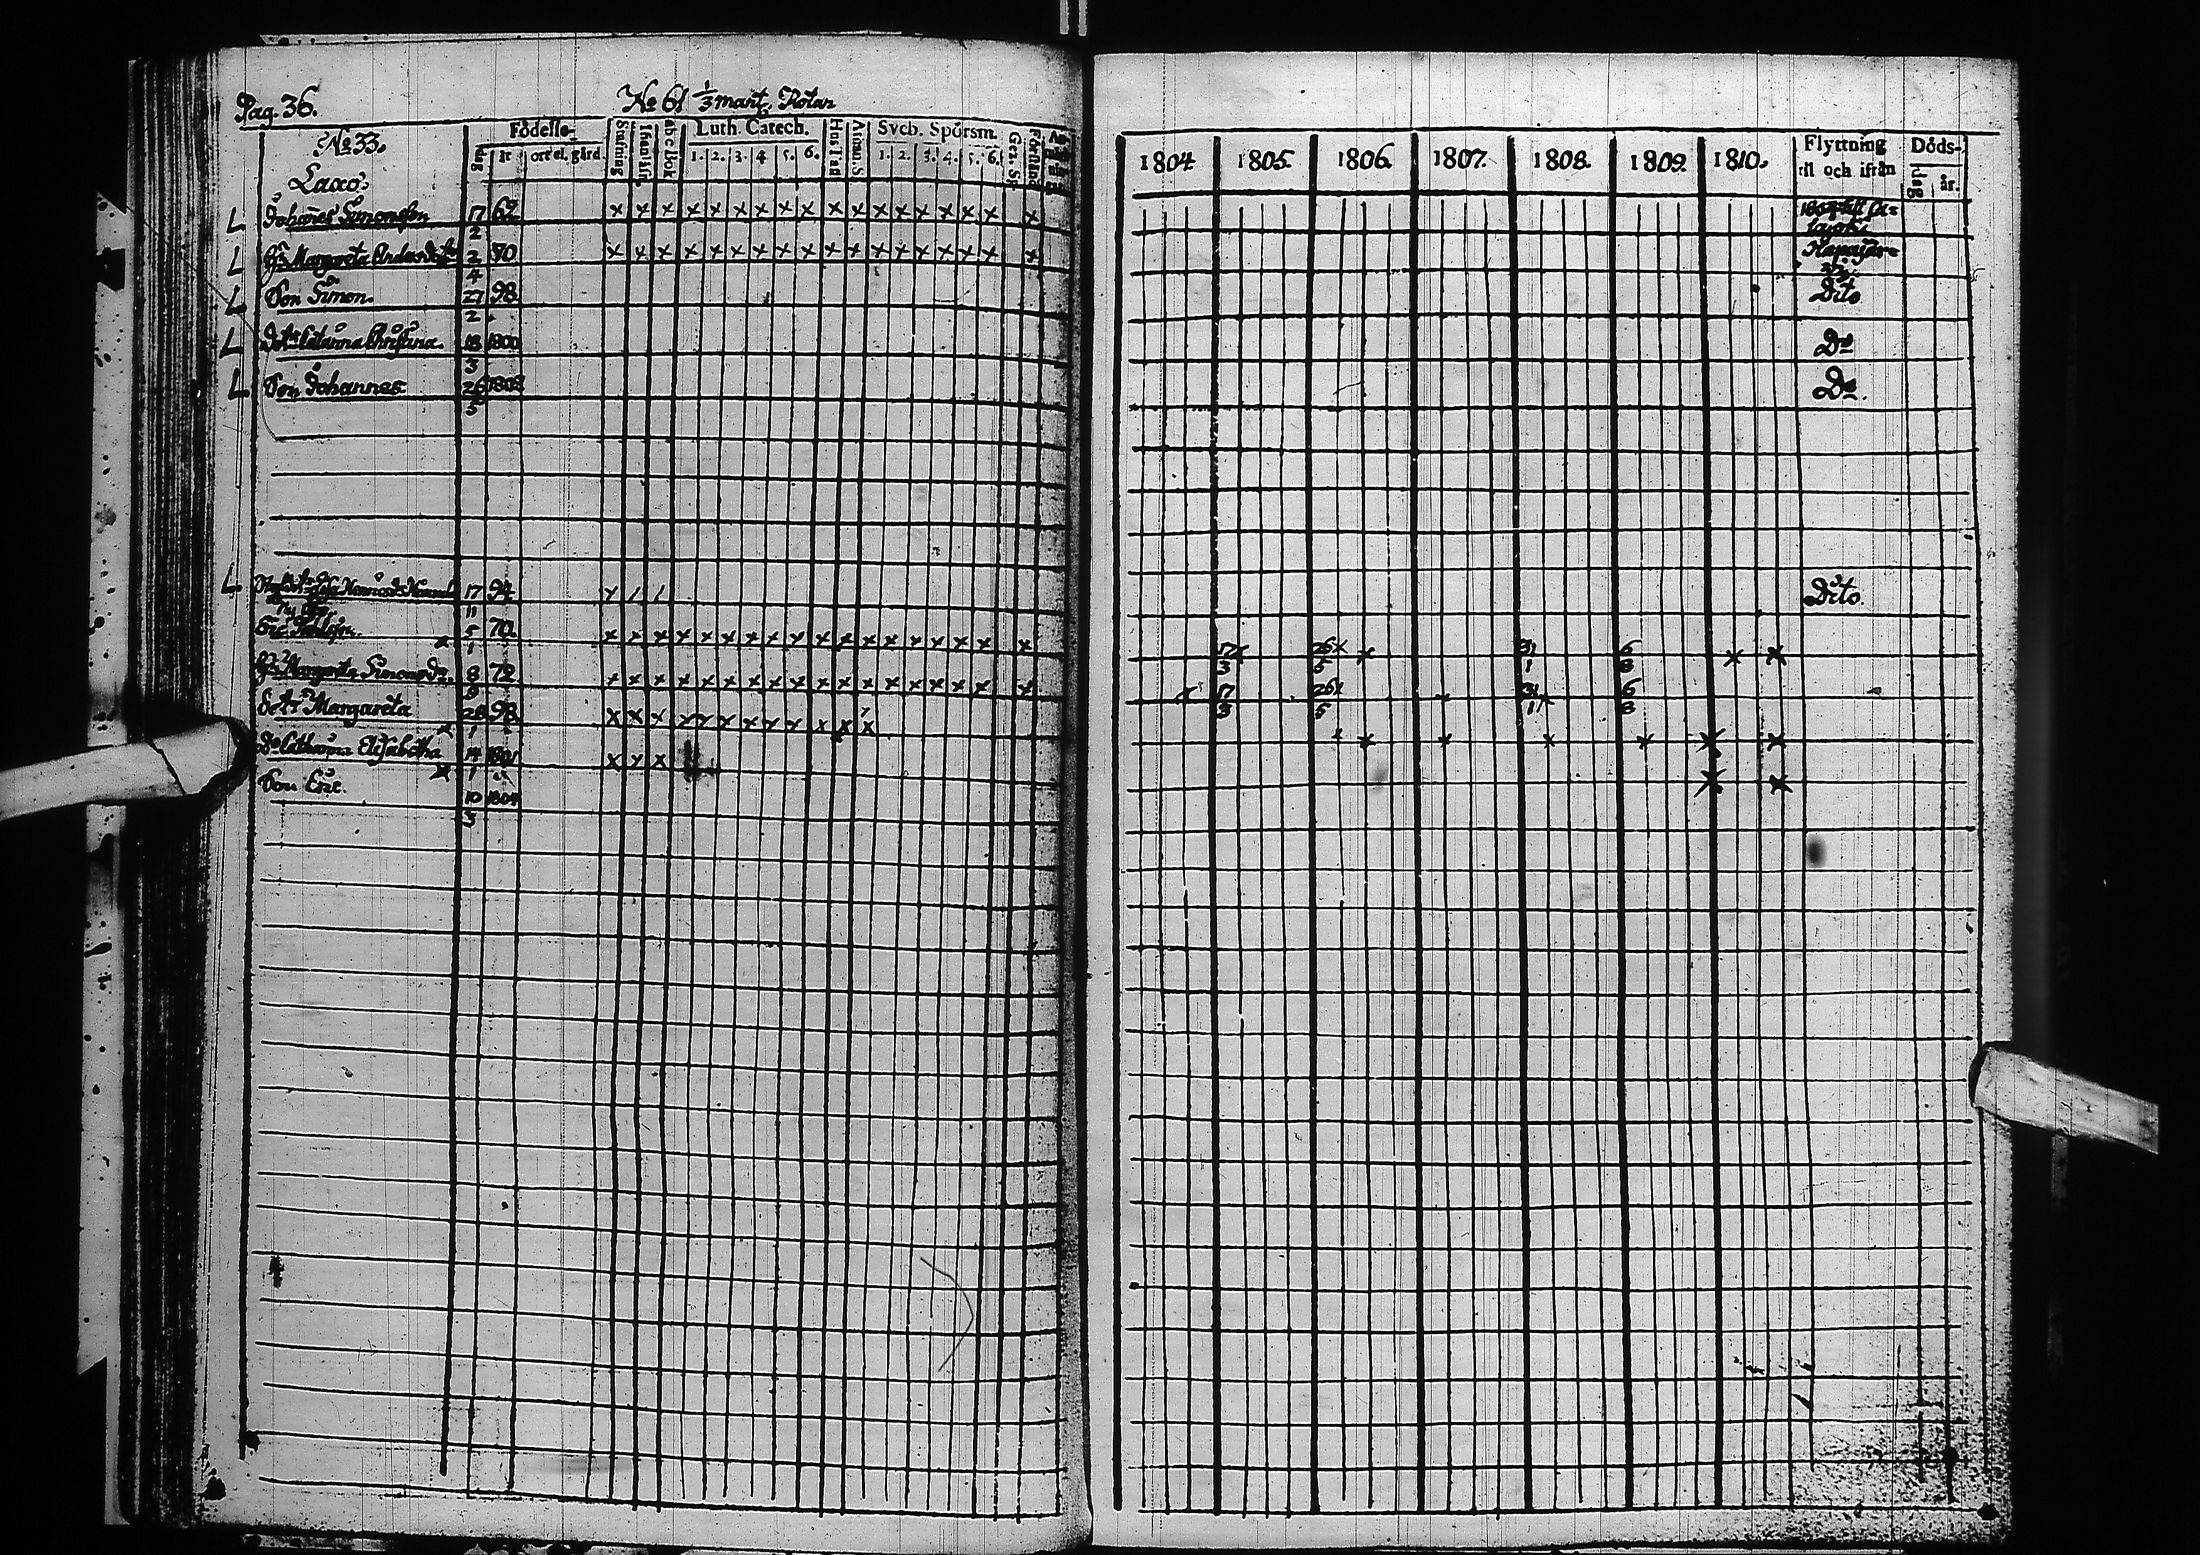 Pag. 36.
No 61 1/3 mant. Rotar
No 33.
Laxo.
Födelse-
dag år ort el. gård
Stafning Innan läsn. abc bok Luth. Catech. Hus Tafl Athan. S Sveb. Spörsm. Förstånd
1. 2. 3. 4 5. 6. 1. 2. 3. 4. 5. 6.
Johañes Simonsson 17/2 62
Hu Margareta Andersdotter 2/4 70
Son Simon. 27/2 98
Dotr Catarina Christina. 18/3 1800
Son Johannes 26/5 1802
17/11 94
Eric 5/1 70
Hu Margareta Simonsdr. 8/9 72
Dotr Margareta 28/1 98
Do Catharina Elisabetha 14/1 1801
Son Eric. 10/3 1804
1804 1805. 1806. 1807. 1808. 1809. 1810.
Flyttning
til och ifrån
Döds-
dag år.
Dito
Do
Do.
Dito.
17/3 26/5 31/1 6/8
17/3 26/5 31/1 6/8